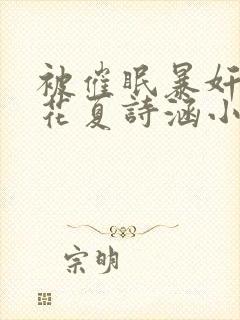 被催眠暴奸
花夏詩涵小
宗明